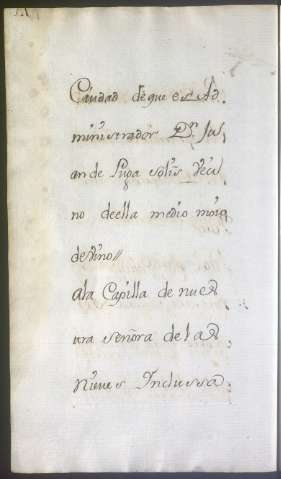 Caudad de que es Ad
ministrador Dn. Jul
an de Puga solis Veci
no deella medio moio
de vino//
ala Capilla de nues
tra señora de las
nieves Inclussa